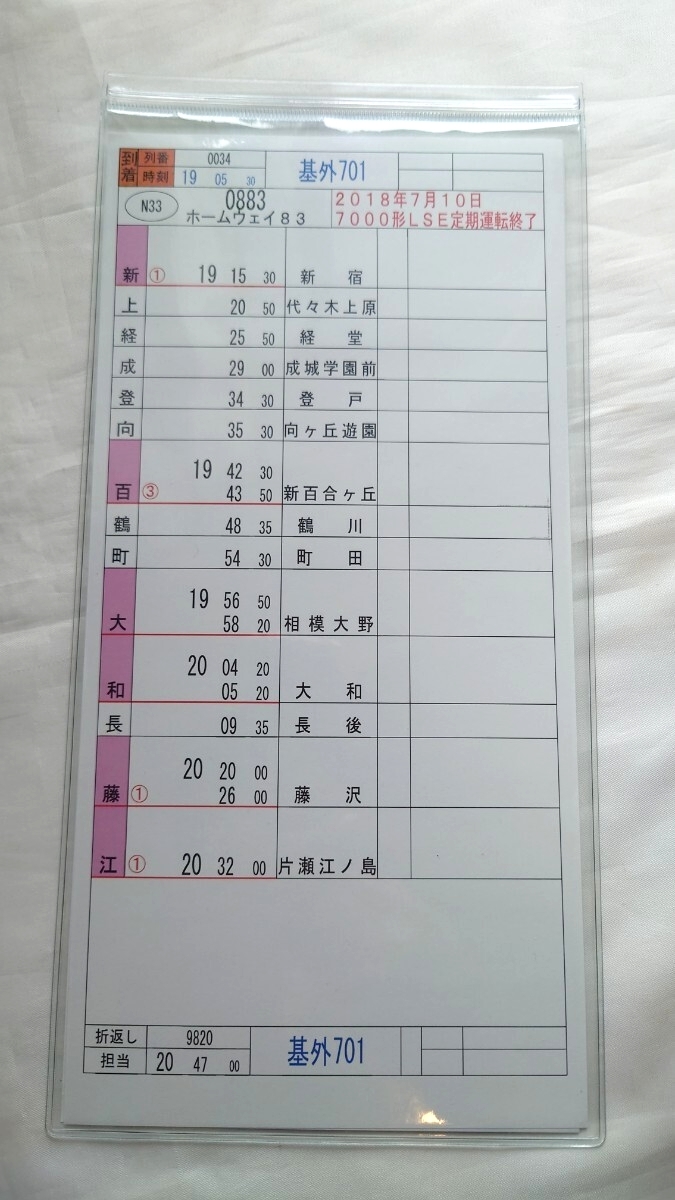 到着 列番 0034 基外701
時刻 19 05 30
N33 0883 2018年7月10日
ホームウェイ83 7000形LSE定期運転終了
新 ① 19 15 30 新宿
上 20 50 代々木上原
経 25 50 経堂
成 29 00 成城学園前
登 34 30 登戸
向 35 30 向ヶ丘遊園
19 42 30
百 ③ 43 50 新百合ヶ丘
鶴 48 35 鶴川
町 54 30 町田
19 56 50
大 58 20 相模大野
20 04 20
和 05 20 大和
長 09 35 長後
20 20 00
藤 ① 26 00 藤沢
江 ① 20 32 00 片瀬江ノ島
折返し 9820 基外701
担当 20 47 00